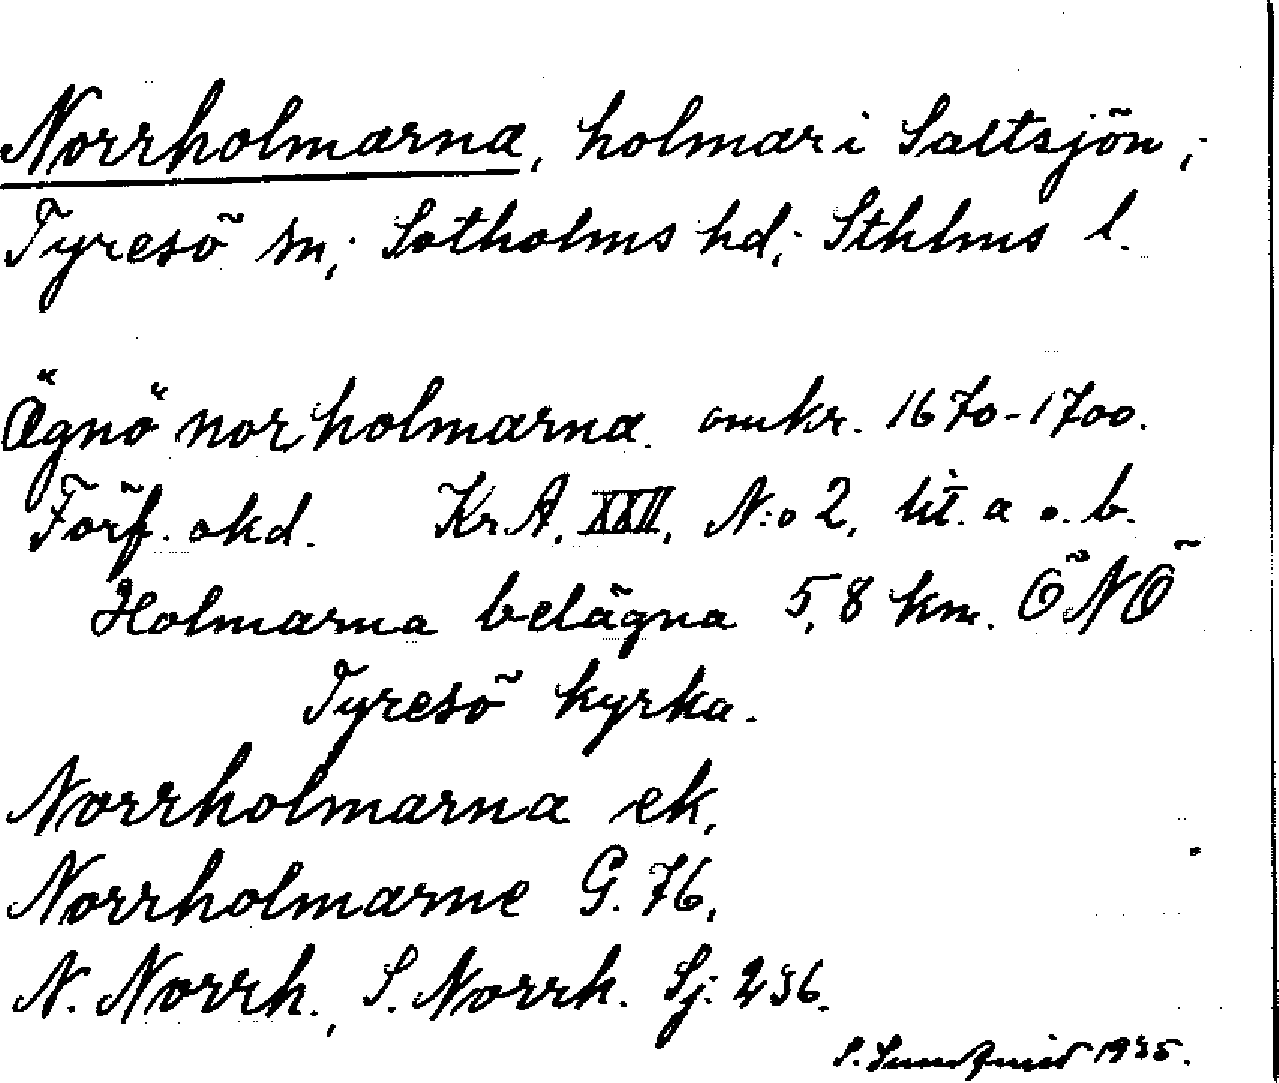 Norrholmarna, holmar i Saltsjön,
Tyresö sn, Sotholms hd, Sthlms l.
Ägnö norholmarna. omkr. 1670-1700.
Förf. okd. Kr.A. XXII, N:o 2, lit. a o. b.
Holmarna belägna 5,8 km. ÖNÖ
Tyresö kyrka.
Norrholmarna ek,
Norrholmarne G. 76,
N. Norrh., S. Norrh. Sj. 236.
S. 1935.